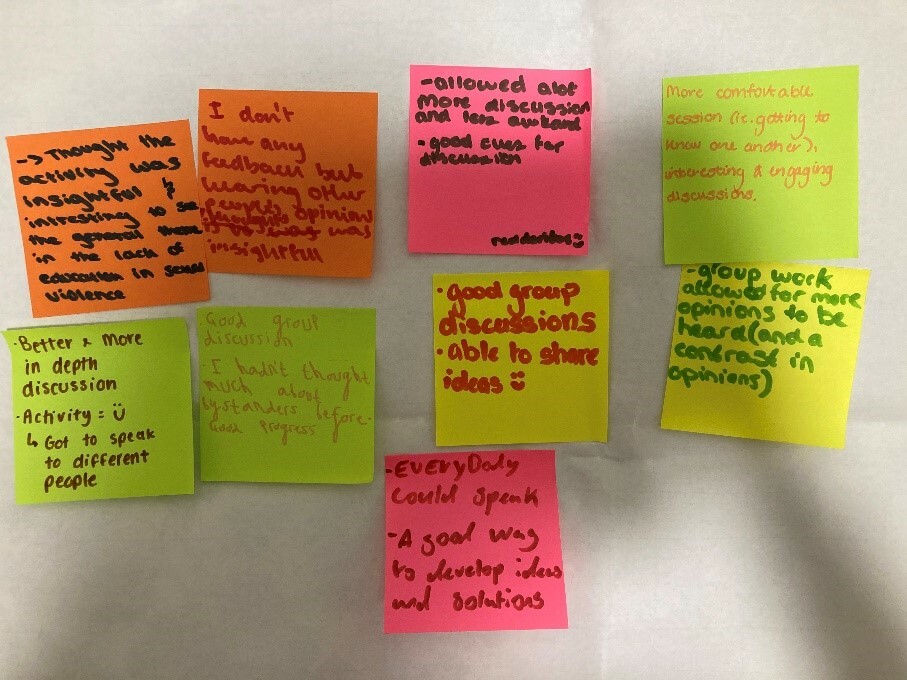 -> Thought the
activity was
insightful &
intresting to see
the general theme
in the lack of
education in sexual
violence
I don't
have any
feedback but
hearing other
peoples opinions
was
insightfull
-allowed alot
more discussion
and less awkward
-good cues for
discussion
More comfortable
session (ie. getting to
know one another),
interesting & engaging
discussions.
·Better & More
in depth
discussion
·Activity = ü
↳ Got to speak
to different
people
·Good group
discussion
·I hadn't thought
much about
bystanders before.
Good Progress
·good group
discussions
·able to share
ideas ü
-group work
allowed for more
opinions to be
heard (and a
contrast in
opinions)
-EVERYBody
could speak
-A good way
to develop ideas
and solutions